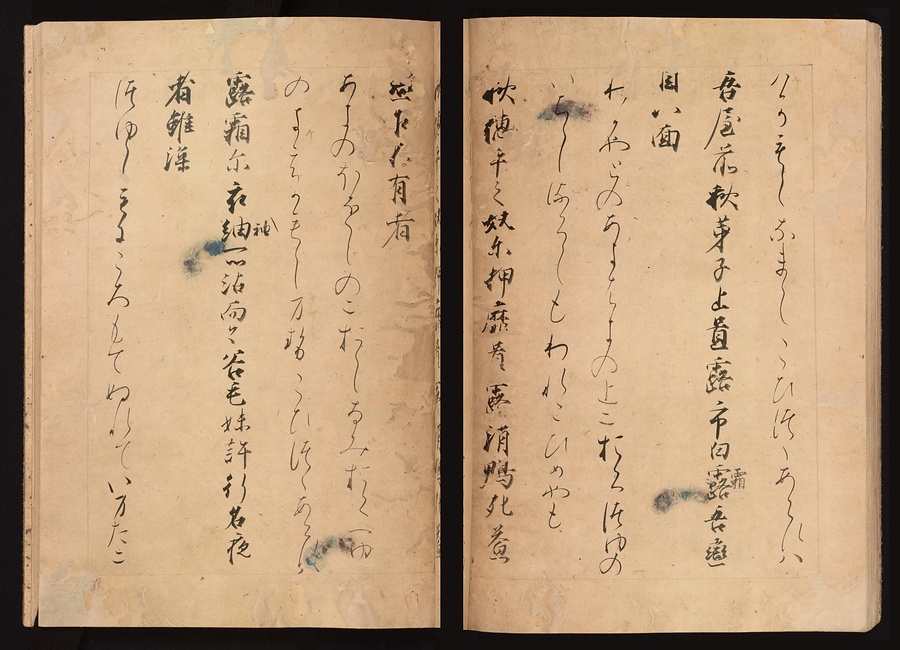 けかもしなましこひつゝあらすは
吾屋前秋芽子上置露市白露霜吾戀
目八面
わかやとのあきはきの上におくつゆの
いちしろくしもわれこひめやも
秋穂乎之努尓押靡置露消鴨死益
戀乍不有者
あきのほをしのにおしなみおくつゆ
の こひつゝあらすは
露霜尓衣紬袖所沾而今谷毛妹許行名夜
者雖深
つゆしもにころもてぬれていまたに